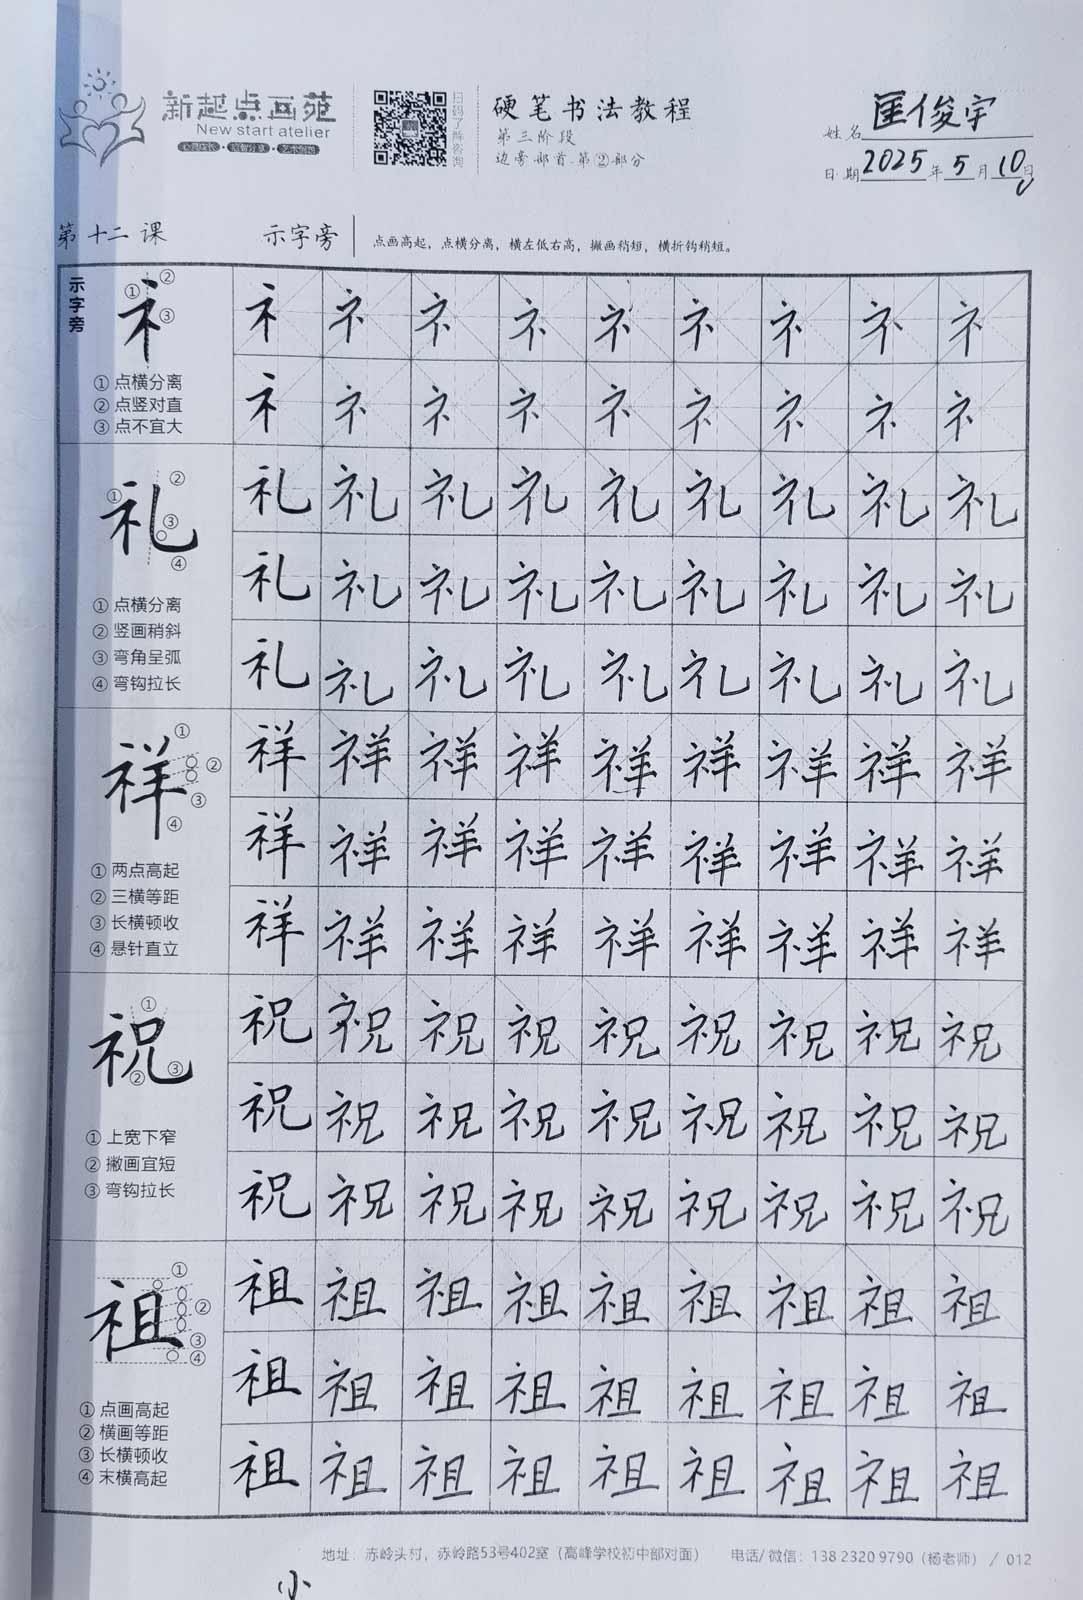 新起点画苑
New start atelier
扫码了解咨询
硬笔书法教程
第三阶段
边旁部首·第②部分
姓名 匡俊宇
日期 2025 年 5 月 10 日
第十二课 示字旁 点画高起，点横分离，横左低右高，撇画稍短，横折钩稍短。
示字旁
① ② ③
礻 礻 礻 礻 礻 礻 礻 礻 礻 礻
① 点横分离
② 点竖对直
③ 点不宜大
礻 礻 礻 礻 礻 礻 礻 礻 礻
① ② ③ ④
礼 礼 礼 礼 礼 礼 礼 礼 礼 礼
礼 礼 礼 礼 礼 礼 礼 礼 礼
① 点横分离
② 竖画稍斜
③ 弯角呈弧
④ 弯钩拉长
礼 礼 礼 礼 礼 礼 礼 礼 礼
① ② ③ ④
祥 祥 祥 祥 祥 祥 祥 祥 祥 祥
祥 祥 祥 祥 祥 祥 祥 祥 祥
① 两点高起
② 三横等距
③ 长横顿收
④ 悬针直立
祥 祥 祥 祥 祥 祥 祥 祥 祥
① ② ③
祝 祝 祝 祝 祝 祝 祝 祝 祝 祝
祝 祝 祝 祝 祝 祝 祝 祝 祝
① 上宽下窄
② 撇画宜短
③ 弯钩拉长
祝 祝 祝 祝 祝 祝 祝 祝 祝
① ② ③ ④
祖 祖 祖 祖 祖 祖 祖 祖 祖 祖
祖 祖 祖 祖 祖 祖 祖 祖 祖
① 点画高起
② 横画等距
③ 长横顿收
④ 末横高起
祖 祖 祖 祖 祖 祖 祖 祖 祖
地址：赤岭头村，赤岭路53号402室（高峰学校初中部对面） 电话/微信：138 2320 9790（杨老师） / 012
小